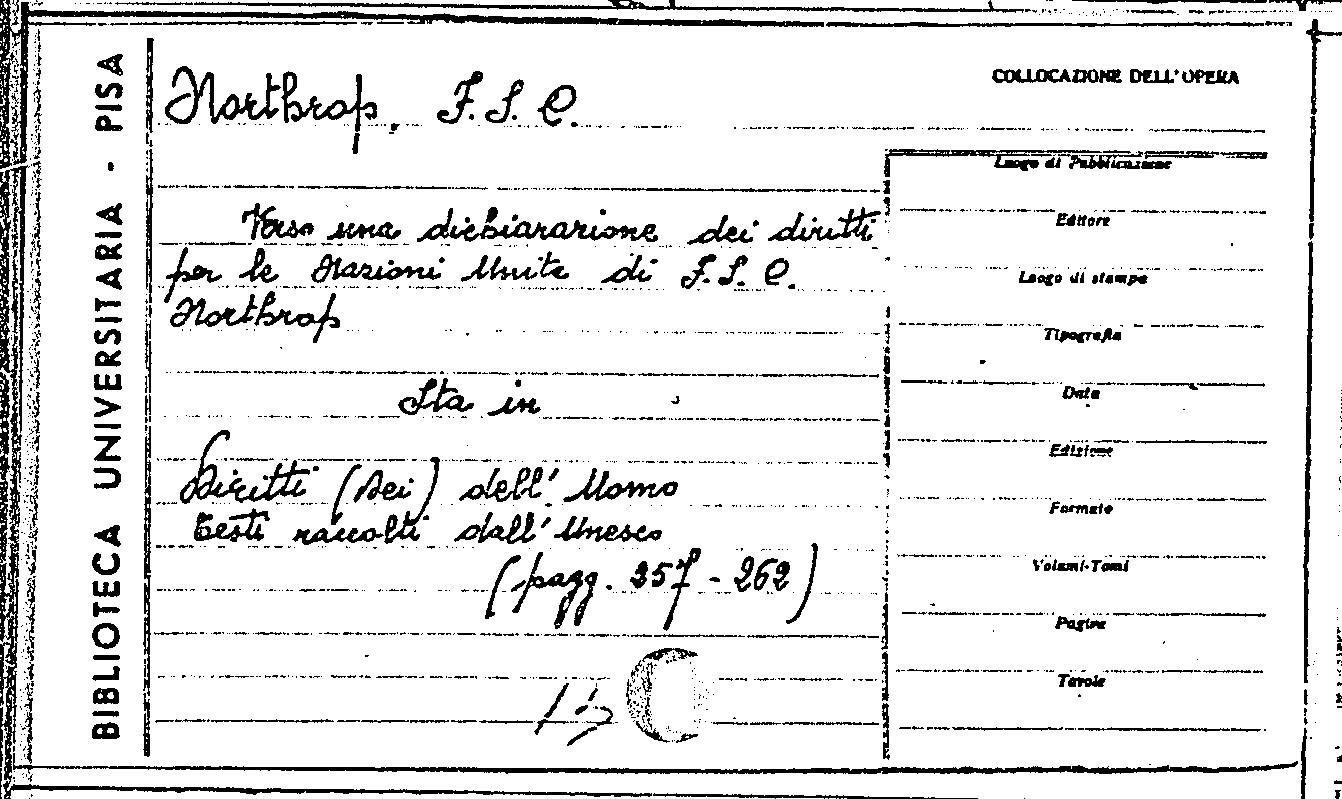 BIBLIOTECA UNIVERSITARIA - PISA
Northrop, F. S. C.
Verso una dichiarazione dei diritti
per le Nazioni Unite di F. S. C.
Northrop
Sta in
Diritti (Dei) dell' Uomo
Testi raccolti dall' Unesco
(pagg. 257 - 262)
COLLOCAZIONE DELL' OPERA
Luogo di Pubblicazione
Editore
Luogo di stampa
Tipografia
Data
Edizione
Formato
Volumi-Tomi
Pagine
Tavole